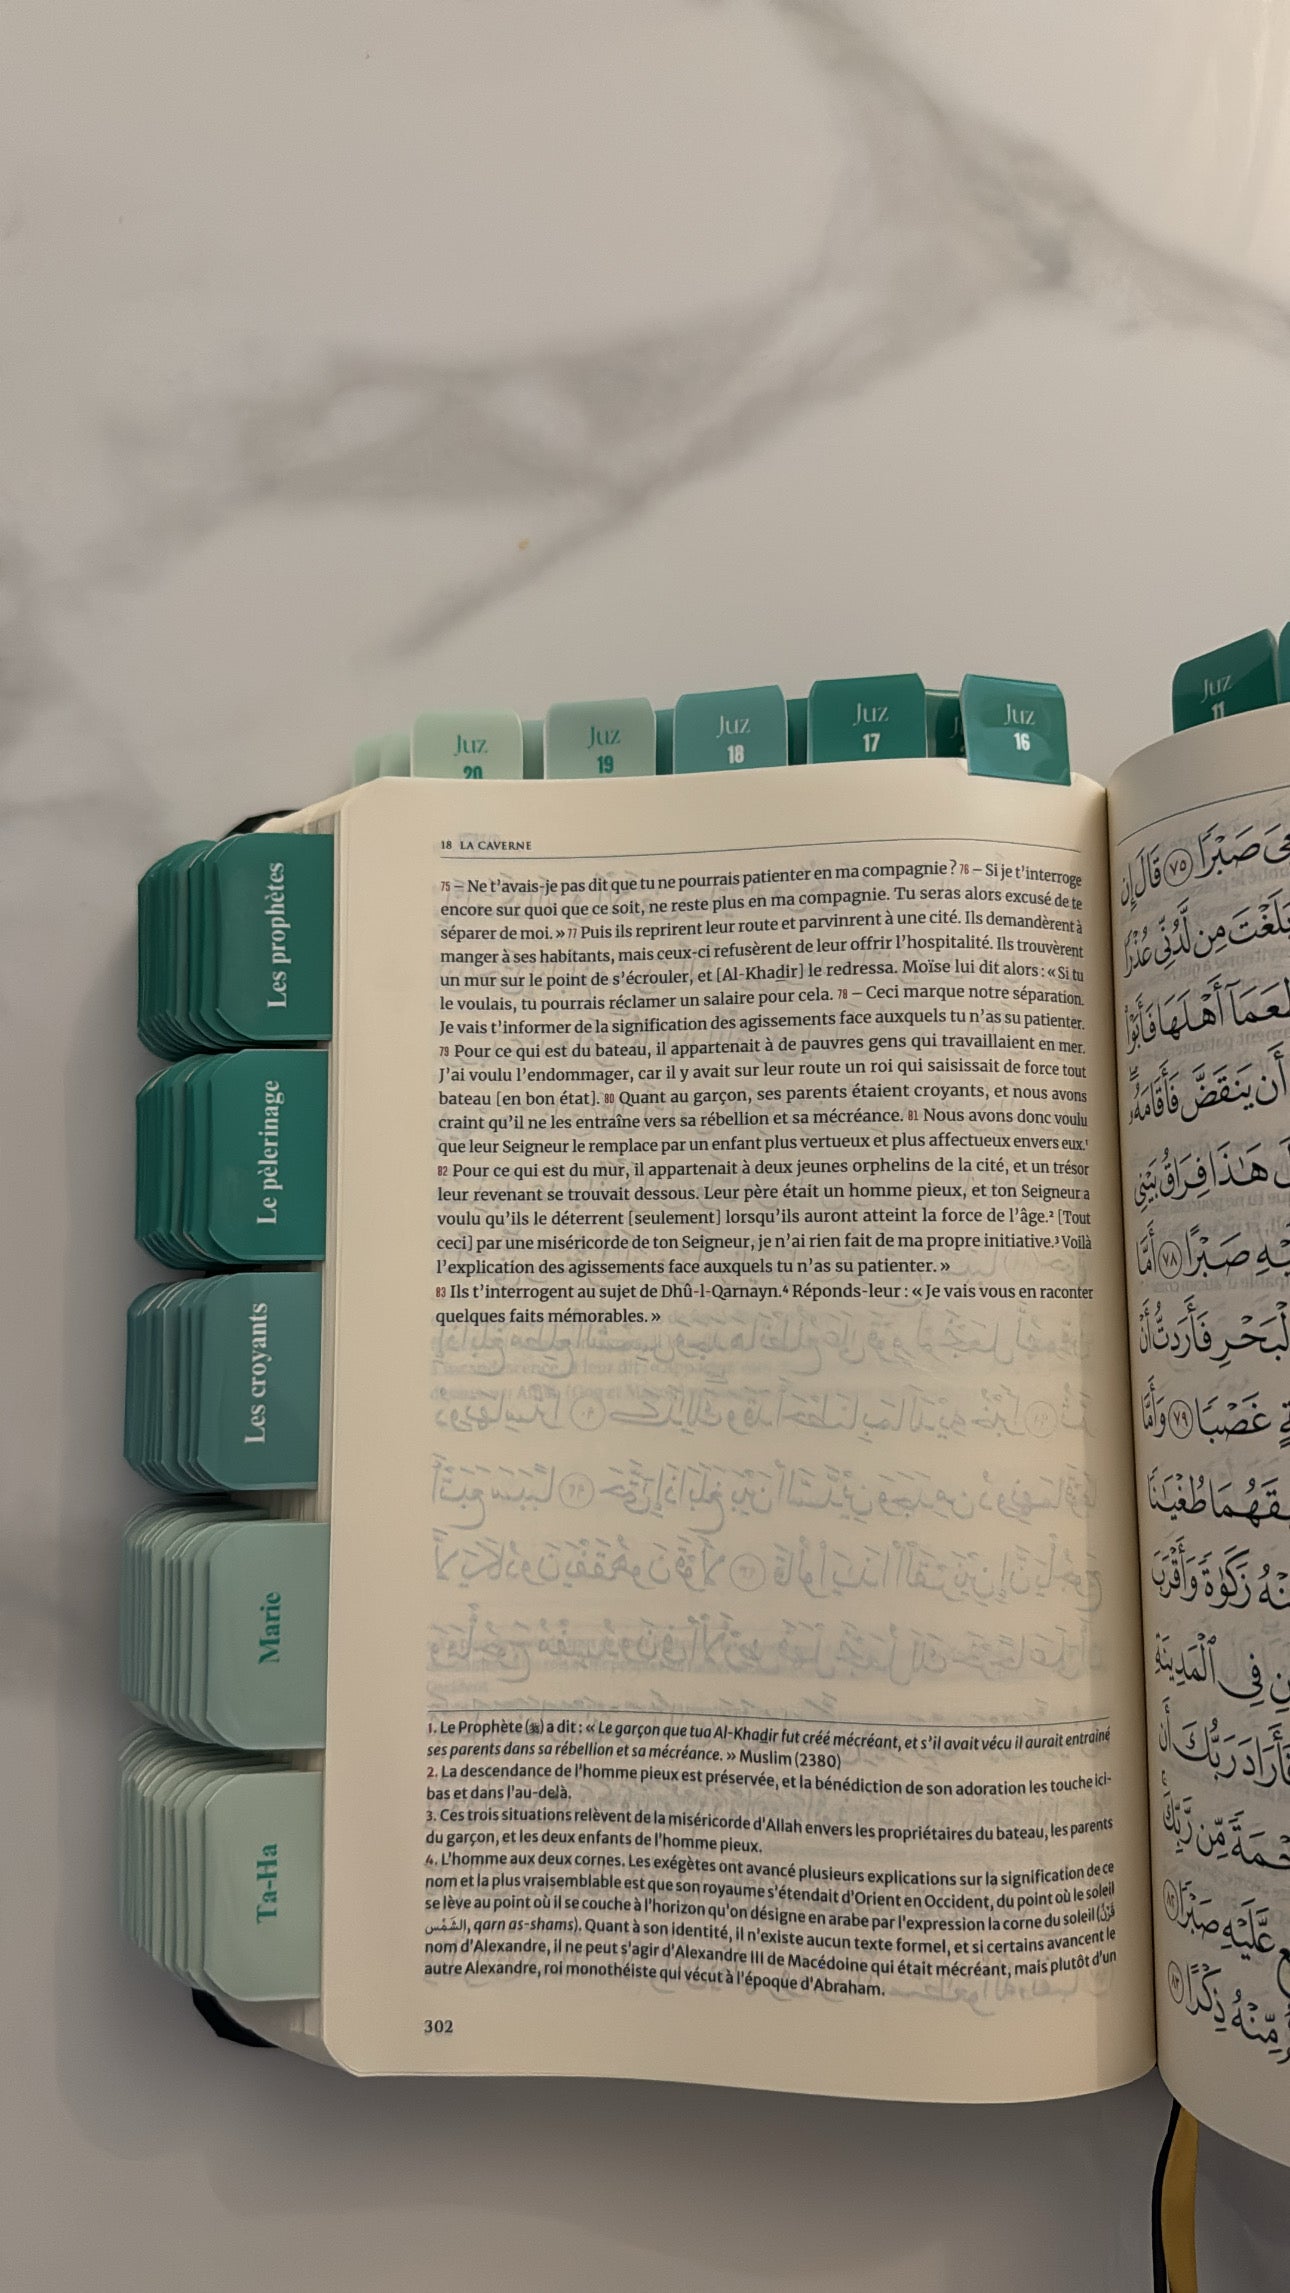 Juz
20
Juz
19
Juz
18
Juz
17
Juz
16
Juz
11
Les prophètes
Le pèlerinage
Les croyants
Marie
Ta-Ha
18 LA CAVERNE
75 – Ne t'avais-je pas dit que tu ne pourrais patienter en ma compagnie ? 76 – Si je t'interroge
encore sur quoi que ce soit, ne reste plus en ma compagnie. Tu seras alors excusé de te
séparer de moi. » 77 Puis ils reprirent leur route et parvinrent à une cité. Ils demandèrent à
manger à ses habitants, mais ceux-ci refusèrent de leur offrir l'hospitalité. Ils trouvèrent
un mur sur le point de s'écrouler, et [Al-Khadir] le redressa. Moïse lui dit alors : « Si tu
le voulais, tu pourrais réclamer un salaire pour cela. 78 – Ceci marque notre séparation.
Je vais t'informer de la signification des agissements face auxquels tu n'as su patienter.
79 Pour ce qui est du bateau, il appartenait à de pauvres gens qui travaillaient en mer.
J'ai voulu l'endommager, car il y avait sur leur route un roi qui saisissait de force tout
bateau [en bon état]. 80 Quant au garçon, ses parents étaient croyants, et nous avons
craint qu'il ne les entraîne vers sa rébellion et sa mécréance. 81 Nous avons donc voulu
que leur Seigneur le remplace par un enfant plus vertueux et plus affectueux envers eux.¹
82 Pour ce qui est du mur, il appartenait à deux jeunes orphelins de la cité, et un trésor
leur revenant se trouvait dessous. Leur père était un homme pieux, et ton Seigneur a
voulu qu'ils le déterrent [seulement] lorsqu'ils auront atteint la force de l'âge.² [Tout
ceci] par une miséricorde de ton Seigneur, je n'ai rien fait de ma propre initiative.³ Voilà
l'explication des agissements face auxquels tu n'as su patienter. »
83 Ils t'interrogent au sujet de Dhû-l-Qarnayn.⁴ Réponds-leur : « Je vais vous en raconter
quelques faits mémorables. »
1. Le Prophète (ﷺ) a dit : « Le garçon que tua Al-Khadir fut créé mécréant, et s'il avait vécu il aurait entrainé
ses parents dans sa rébellion et sa mécréance. » Muslim (2380)
2. La descendance de l'homme pieux est préservée, et la bénédiction de son adoration les touche ici-
bas et dans l'au-delà.
3. Ces trois situations relèvent de la miséricorde d'Allah envers les propriétaires du bateau, les parents
du garçon, et les deux enfants de l'homme pieux.
4. L'homme aux deux cornes. Les exégètes ont avancé plusieurs explications sur la signification de ce
nom et la plus vraisemblable est que son royaume s'étendait d'Orient en Occident, du point où le soleil
se lève au point où il se couche à l'horizon qu'on désigne en arabe par l'expression la corne du soleil (قَرْنُ
الشَّمْسِ, qarn as-shams). Quant à son identité, il n'existe aucun texte formel, et si certains avancent le
nom d'Alexandre, il ne peut s'agir d'Alexandre III de Macédoine qui était mécréant, mais plutôt d'un
autre Alexandre, roi monothéiste qui vécut à l'époque d'Abraham.
302
صَبْرًا ٧٥ قَالَ إِن
مِن لَّدُنِّي عُذْرًا
أَهْلَهَا فَأَبَوْا
أَن يَنقَضَّ فَأَقَامَهُۥ
هَٰذَا فِرَاقُ بَيْنِي
صَبْرًا ٧٨ أَمَّا
فَأَرَدتُّ أَنْ
غَصْبًا ٧٩ وَأَمَّا
طُغْيَٰنًا
زَكَوٰةً وَأَقْرَبَ
فِي ٱلْمَدِينَةِ
رَبُّكَ أَن
مِّن رَّبِّكَ
عَّلَيْهِ صَبْرًا ٨٢
مِّنْهُ ذِكْرًا ٨٣